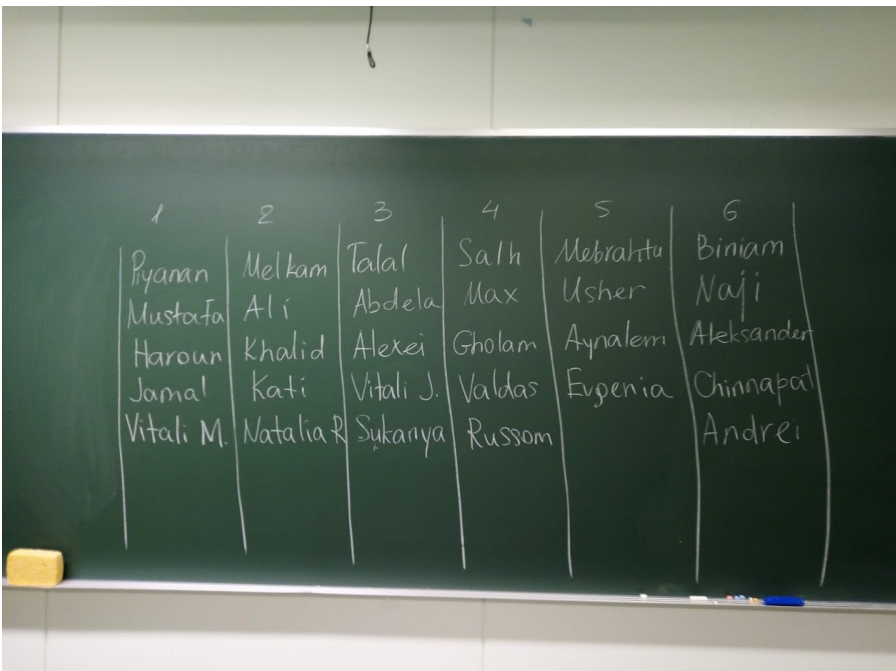 1 2 3 4 5 6
Piyanan Melkam Talal Salh Mebrahtu Biniam
Mustafa Ali Abdela Max Usher Naji
Haroun Khalid Alexei Gholam Aynalem Aleksander
Jamal Kati Vitali J. Valdas Evgenia Chinnapat
Vitali M. Natalia R Sukanya Russom Andrei